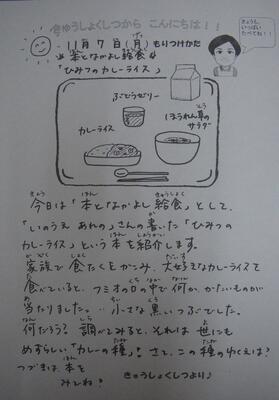 きゅうしょくしつから こんにちは！！
11月7日(月) もりつけかた
本となかよし給食
「ひみつのカレーライス」
きょうも、いっぱいたべてね！！
ぶどうゼリー
カレーライス
ほうれん草のサラダ
今日は「本となかよし給食」として、
「いのうえ あれの」さんの書いた「ひみつの
カレーライス」という本を紹介します。
家族で食たくをかこみ、大好きなカレーライスを
食べていると、フミオの口の中で何か、かたいものが
当たりました。‥小さな黒いつぶでした。
何だろう？調べてみると、それは世にも
めずらしい「カレーの種」！さて、この種のゆくえは？
つづきは、本を
みてね？
きゅうしょくしつより♪